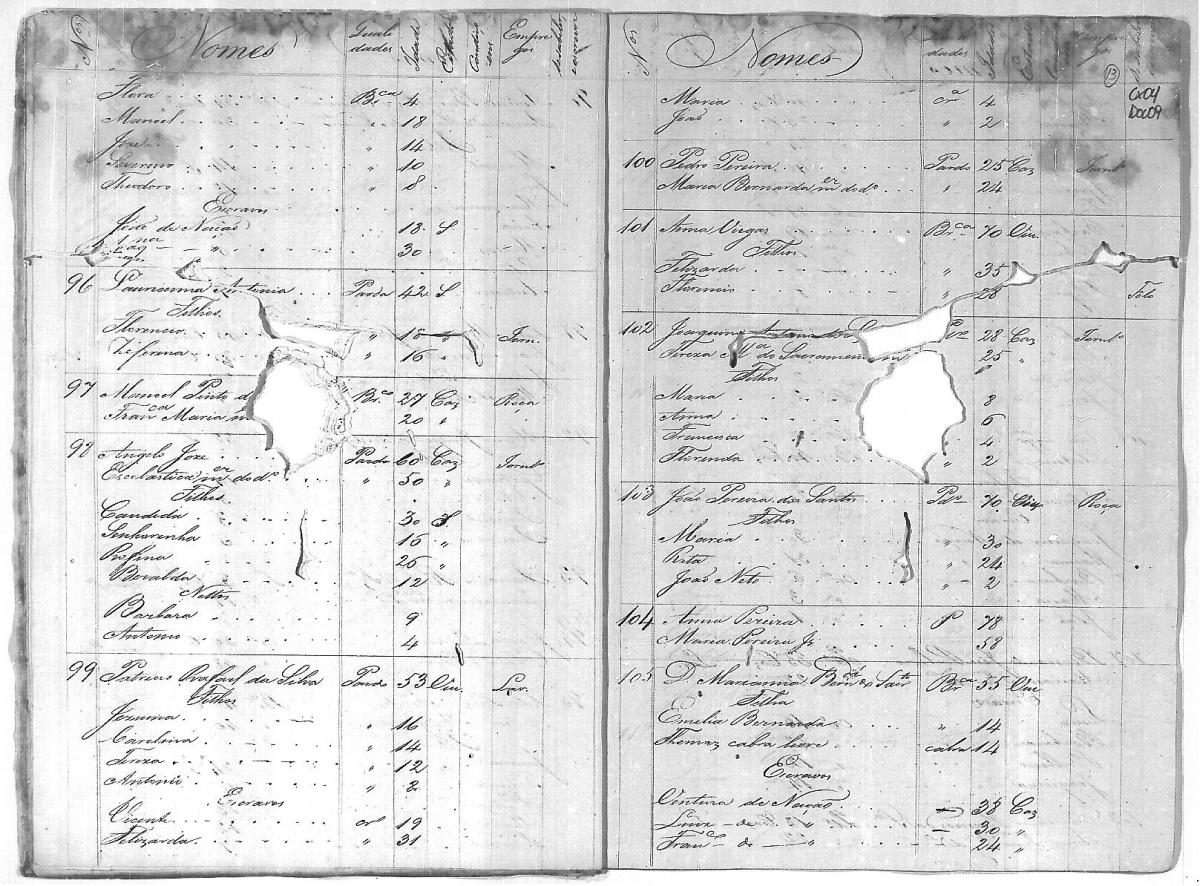 Nos Nomes Quali dades Idade Estado Condiç Empre gos
Flora Br.ca 4
Manoel " 18
Joze " 14
Severino " 10
Theodoro " 8
Escravos
José de Nação 18 S
" 30
96 Antonia Parda 42 S
Filhos
Florencio " 18 Jorn.
Ziferina " 16 "
97 Manoel Pinto d Br.co 27 Caz Roça
Fran.ca Maria m 20 "
98 Angelo Joze Pardo 60 Caz Jornl.o
Escolastica m.er do d.o " 50 "
Filhos
Candida 30 S
Senhorenha 15 "
Rofina 25 "
12
Nettos
Barbara 9
Antonio 4
99 Patricio Rafael da Silva Pardo 53 Viu. Lav.
Filhos
Jezuina " 16
Carolina " 14
Tereza " 12
Antonio " 2
Escravos
Vicente crl 19
Felizarda " 31
Nos Nomes dades Idade Estado Empre gos
13
Cx04
Doc09
Maria cr.a 4
João " 2
100 Pedro Pereira Pardo 25 Caz Jornl.o
Maria Bernarda m.er do d.o " 24
101 Anna Viegas Br.ca 70 Viu.
Filhos
Felizarda " 35
Florencio " 28
102 Joaquim 28 Caz Jornl.o
Tereza M.a do Sacramen 25 "
Filhos
Maria 8
Anna 6
Francisca " 4
Florinda " 2
103 João Pereira dos Santos Pd.o 70 Viu. Roça
Filhos
Maria " 30
Rita " 24
João Neto " 2
104 Anna Pereira P 78
Maria Pereira 58
105 D. Bern.da Br.ca 55 Viu.
Filha
Emelia Bernarda " 14
Thomaz cabra livre cabra 14
Escravos
Ventura de Nação 38 Caz
de " 30 "
Fran.co de " 24 "